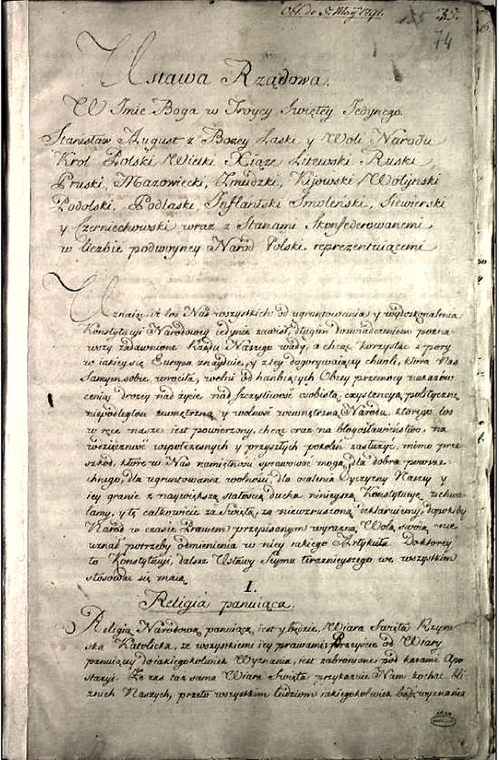 Obl. de 5. Maij 1791.
74
Ustawa Rządowa.
W Imie Boga w Troycy Swiętey Jedynego.
Stanisław August z Bozey Łaski y Woli Narodu
Krol Polski Wielki Xiąze Litewski Ruski
Pruski, Mazowiecki, Zmudzki, Kijowski Wołyński
Podolski, Podlaski Inflantski Smolenski, Siewierski
y Czerniechowski wraz z Stanami Skonfederowanemi
w liczbie podwoyney Narod Polski reprezentuiącemi
Uznaiąc, iz los Nas wszystkich od ugruntowania y wydoskonalenia
Konstytucyi Narodowey iedynie zawisł, długim doswiadczeniem pozna-
wszy zadawnione Rządu Naszego wady, a chcąc korzystac z pory
w iakiey się Europa znayduie, y z tey dogorywaiącey chwili, ktora Nas
Samym sobie wrociła, wolni od hanbiących Obcey przemocy nakazow
ceniąc drozey nad zycie nad szczęśliwosc osobistą, egzystencyą polityczną
niepodległosc zewnętrzną y wolnosc wewnętrzną Narodu, ktorego los
w ręce nasze iest powierzony, chcąc oraz na błogosławienstwo, na
wdzięcznosc wspołczesnych y przyszłych pokolen zasłuzyc, mimo prze-
szkod, ktore w Nas namiętnosci sprawowac mogą, dla dobra powsze-
chnego, dla ugruntowania wolnosci, dla ocalenia Oyczyzny Naszey y
iey granic z naywiększą stałoscią ducha ninieyszą Konstytucyę uchwa-
lamy, y tę całkowicie za Swiętą, za niewzruszoną deklaruiemy, dopokiby
Narod w czasie Prawem przepisanym wyrazną Wolą swoią nie
uznał potrzeby odmienienia w niey iakiego Artykułu. Do ktorey
to Konstytucyi, dalsze Ustawy Seymu teraznieyszego we wszystkim
stosowac się maią.
I.
Religia panuiąca.
Religią Narodową panuiącą iest y będzie Wiara Swięta Rzym-
ska Katolicka, ze wszystkiemi iey prawami, Przeyscie od Wiary
panuiącey do iakiegokolwiek Wyznania, iest zabronione pod karami Apo-
stazyi. Ze zas taz sama Wiara Swięta przykazuie Nam kochac bli-
znich Naszych, przeto wszystkim ludziom iakiegokolwiek bądz wyznania